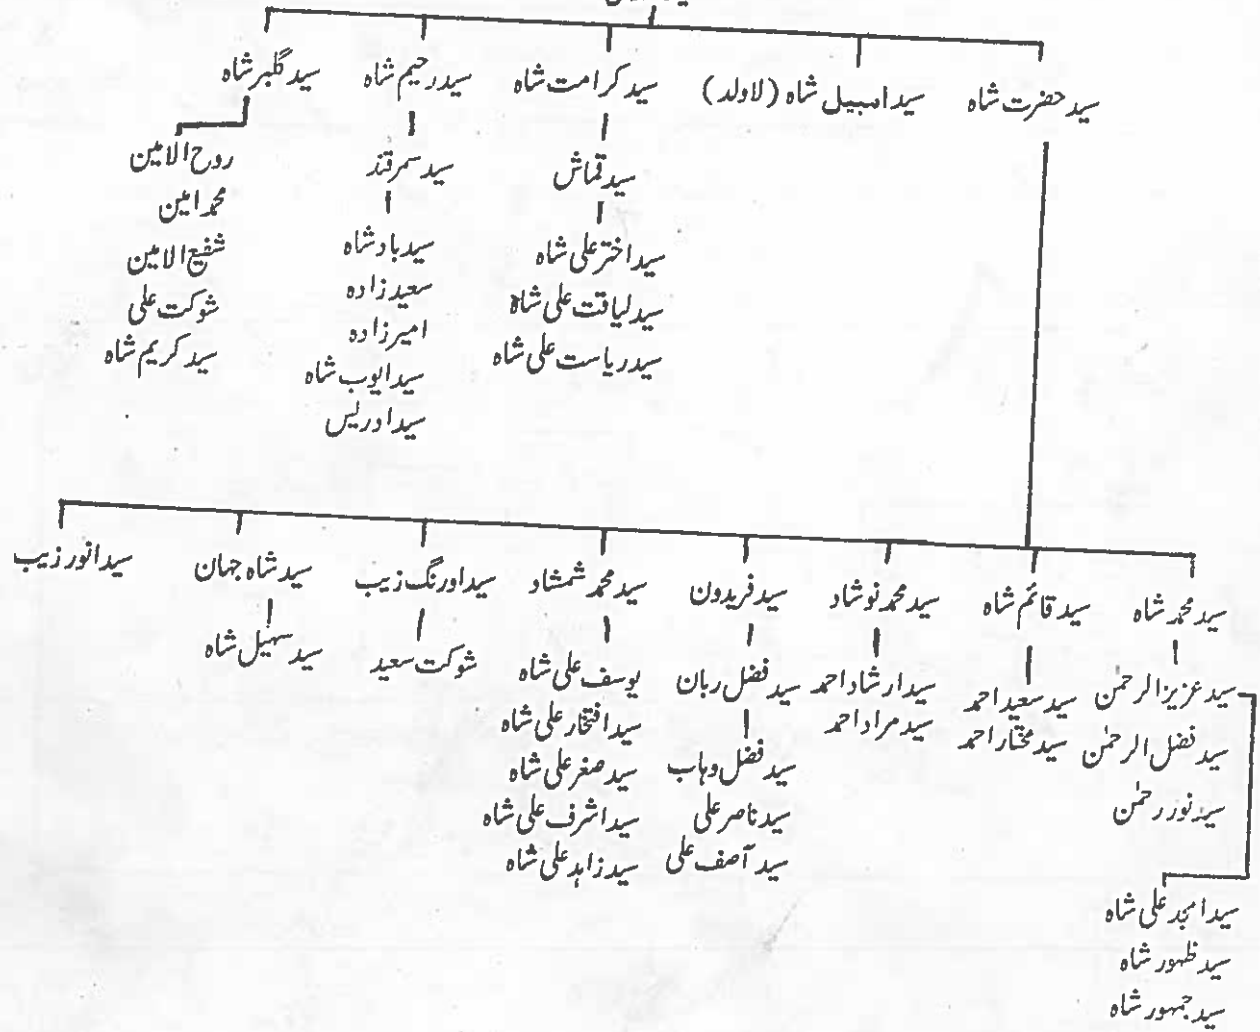 سید حضرت شاہ
سید اسبیل شاہ (لاولد)
سید کرامت شاہ
سید رحیم شاہ
سید گلبر شاہ
سید قماش
سید اختر علی شاہ
سید لیاقت علی شاہ
سید ریاست علی شاہ
سید سمرقند
سید بادشاہ
سعید زادہ
امیر زادہ
سید ایوب شاہ
سید ادریس
روح الامین
محمد امین
شفیع الامین
شوکت علی
سید کریم شاہ
سید محمد شاہ
سید قائم شاہ
سید محمد نوشاد
سید فریدون
سید محمد شمشاد
سید اورنگ زیب
سید شاہ جہان
سید انور زیب
سید عزیز الرحمٰن
سید فضل الرحمٰن
سید نور رحمٰن
سید امجد علی شاہ
سید ظہور شاہ
سید جمہور شاہ
سید سعید احمد
سید مختار احمد
سید ارشاد احمد
سید مراد احمد
سید فضل ربان
سید فضل وہاب
سید ناصر علی
سید آصف علی
یوسف علی شاہ
سید افتخار علی شاہ
سید صغر علی شاہ
سید اشرف علی شاہ
سید زاہد علی شاہ
شوکت سعید
سید سہیل شاہ